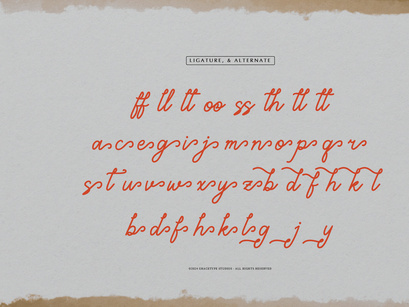 LIGATURE, & ALTERNATE
ff ll tt oo ss th tl tt
a c e g i j m n o p q r
s t u v w x y z b d f h k l
b d f h k l g j y